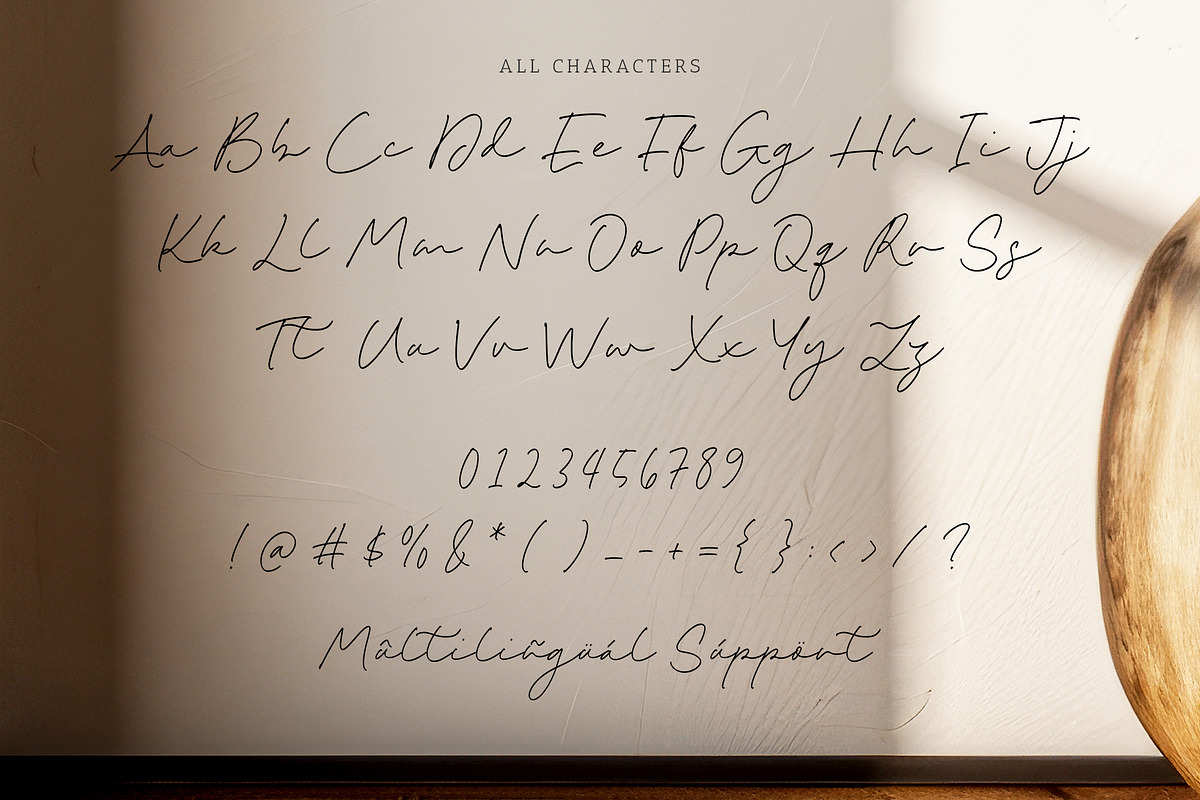 ALL CHARACTERS
Aa Bb Cc Dd Ee Ff Gg Hh Ii Jj
Kk Ll Mm Nn Oo Pp Qq Rr Ss
Tt Uu Vv Ww Xx Yy Zz
0123456789
! @ # $ % & * ( ) _ - + = { } : < > / ?
Mûltiliñgüál Súppört